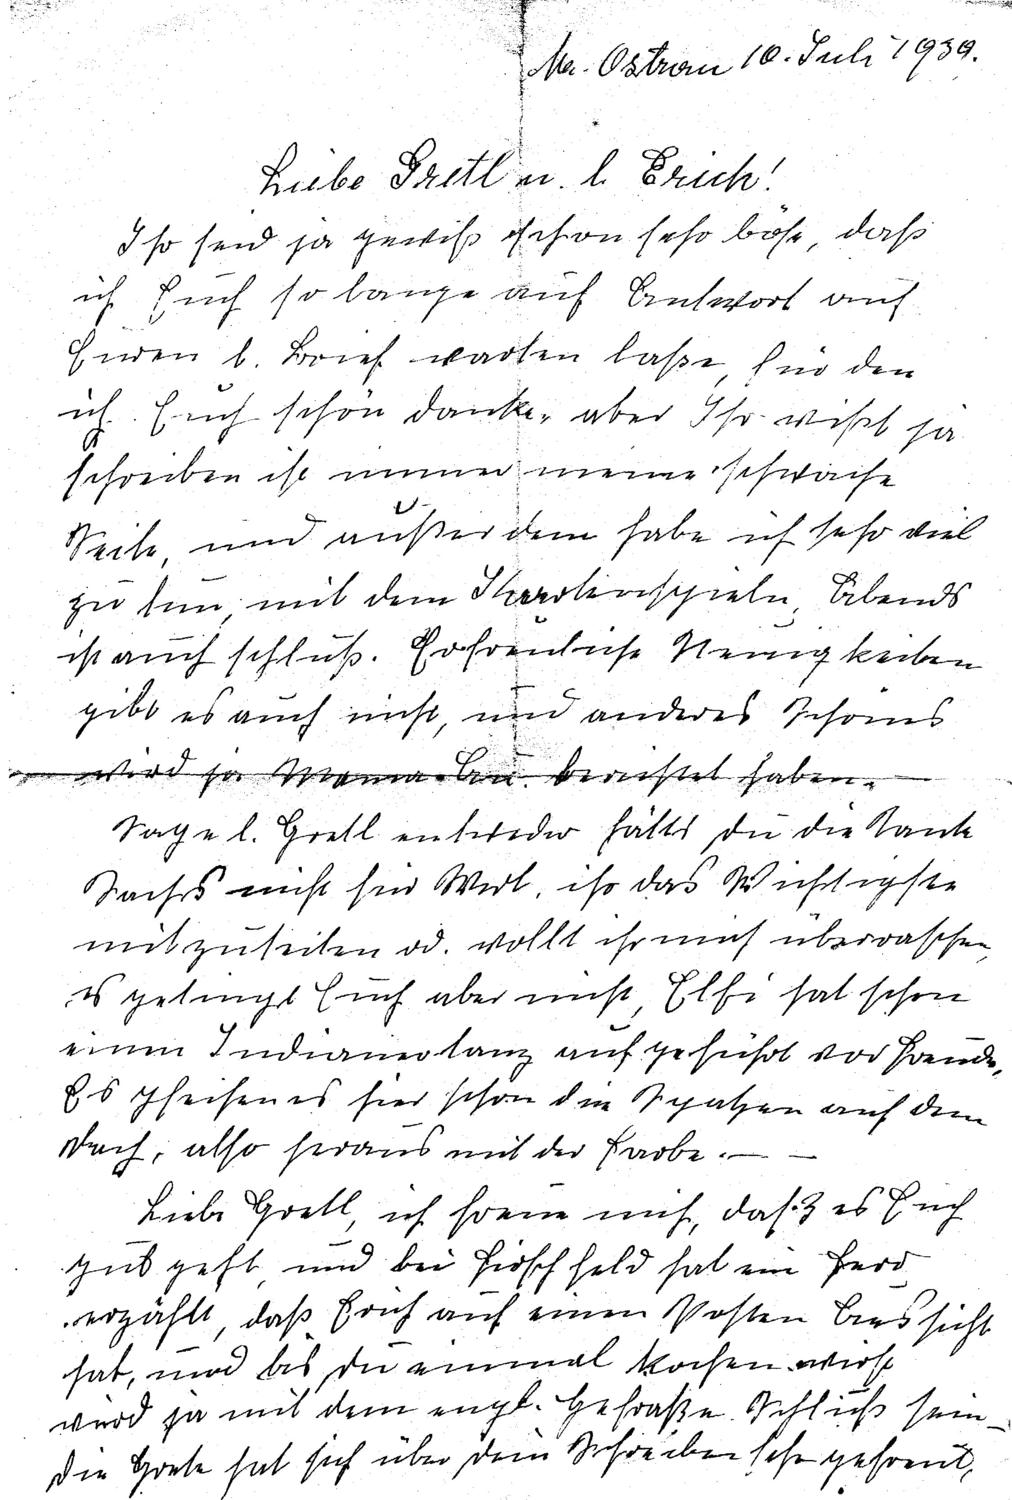 Mr. Ostrau 10. Juli 1939.
Liebe Gretl u. l. Erich!
Ihr seid ja gewiß schon sehr böse, daß
ich Euch so lange auf Antwort auf
Euren l. Brief warten laße, für den
ich Euch schön danke, aber Ihr wißt ja
schreiben ist immer meine schwache
Seite, und außerdem habe ich sehr viel
zu tun, mit dem Kartenspieln, Abends
ist auch schluß. Erfreuliche Neuigkeiten
gibt es auch nicht, und anderes Schönes
wird ja Mama berichtet haben.
Sage l. Gretl entweder hälts du die Tante
Sachs nicht für Wert, ihr das Wichtigste
mitzuteilen od. wollt ihr mich überraschen,
es gelingt Euch aber nicht, Elfi hat schon
einen Indianertanz aufgeführt vor Freude,
Es pfeifen es hier schon die Spatzen auf dem
Dach, also heraus mit der Farbe. — —
Liebe Gretl, ich freue mich, daß es Euch
gut geht, und bei Hirschfeld hat ein
erzählt, daß Erich auf einen Posten Aussicht
hat, und bis du einmal kochen wirst
wird ja mit dem engl. Gefraße Schluß sein
die Grete hat sich über dein Schreiben sehr gefreut,